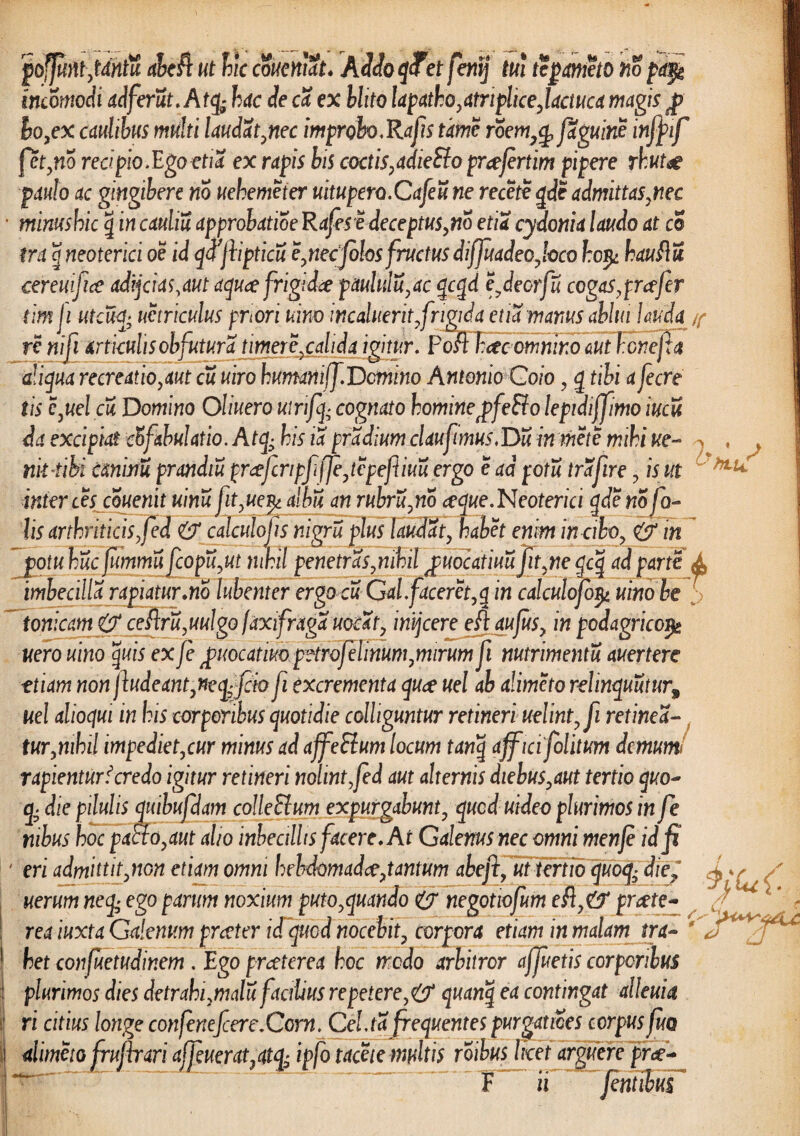 possunt,tãntũ abest ut hic cõueniãt. Addo qđ et senij tui tẽpamẽto nõ paꝝ
incõmodi adferũt. Atq; hac de cã ex blito lapatho,atriplice,lactuca magis ꝓ
bo,ex caulibus multi laudãt,nec improbo.Rasis tamẽ rõem,ꝙ sãguinẽ inspis
sẽt,nõ recipio.Ego etiã ex rapis bis coctis,adiecto præsertim pipere rhutæ
paulo ac gingibere nõ uehemẽter uitupero.Caseũ ne recẽtẽ qdẽ admittas,nec
minus hic ꝗ in cauliũ approbatiõe Rases ẽ deceptus,nõ etiã cydonia laudo at cõ
tra ꝗ neoterici oẽ id qđ stipticũ ẽ,nec solos fructus dissuadeo,loco hoꝝ haustũ
cereuisiæ adijcias,aut aquæ frigidæ paululũ,ac qcqd ẽ,deorsũ cogas,præser
tim si utcũq; uẽtriculus priori uino incaluerit,frigida etiã manus ablui lauda
rẽ nisi articulis obfuturã timerẽ,calida igitur. Post hæc omnino aut honesta
aliqua recreatio,aut cũ uiro humaniss.Domino Antonio Coio , ꝗ tibi a secre
tis ẽ,uel cũ Domino Oliuero utrisq; cognato homine ꝑfecto lepidissimo iucũ
da excipiat cõfabulatio. Atq; his iã prãdium clausimus.Dũ in mẽtẽ mihi ue-
nit tibi caninũ prandiũ præscripsisse,tẽpestiuũ ergo ẽ ad potũ trãsire , is ut
inter oẽs cõuenit uinũ sit,ueꝝ albũ an rubrũ,nõ æque.Neoterici qdẽ nõ so-
lis arthriticis,sed & calculosis nigrũ plus laudãt, habẽt enim in cibo, & in
potu hũc summũ scopũ,ut nihil penetrãs,nihil ꝓuocatiuũ sit,ne qcꝗ ad partẽ
imbecillã rapiatur.nõ lubenter ergo cũ Gal.facerẽt,ꝗ in calculosoꝝ uino be
tonicam & cestrũ,uulgo saxifragã uocãt, inijcere est ausus, in podagricoꝝ
uero uino ꝗuis ex se ꝓuocatiuo petroselinum,mirum si nutrimentũ auertere
etiam non studeant,neq; scio si excrementa quæ uel ab alimẽto relinquũtur,
uel alioqui in his corporibus quotidie colliguntur retineri uelint, si retineã-
tur,nihil impediet,cur minus ad affectum locum tanꝗ affici solitum demum
rapientur?credo igitur retineri nolint,sed aut alternis diebus,aut tertio quo-
q; die pilulis quibusdam collectum expurgabunt, quod uideo plurimos in se
nibus hoc pacto,aut alio inbecillis facere. At Galenus nec omni mense id fi
eri admittit,non etiam omni hebdomadæ,tantum abest, ut tertio quoq; die,
uerum neq; ego parum noxium puto,quando & negotiosum est,& præte-
rea iuxta Galenum præter id quod nocebit, corpora etiam in malam tra-
het consuetudinem . Ego præterea hoc modo arbitror assuetis corporibus
plurimos dies detrahi,malũ facilius repetere,& quanꝗ ea contingat alleuia
ri citius longe consenescere.Corn. Cel.tã frequentes purgatiões corpus suo
alimẽto frustrari asseuerat,atq; ipso tacẽte multis rõibus licet arguere præ-
F ii sentibus